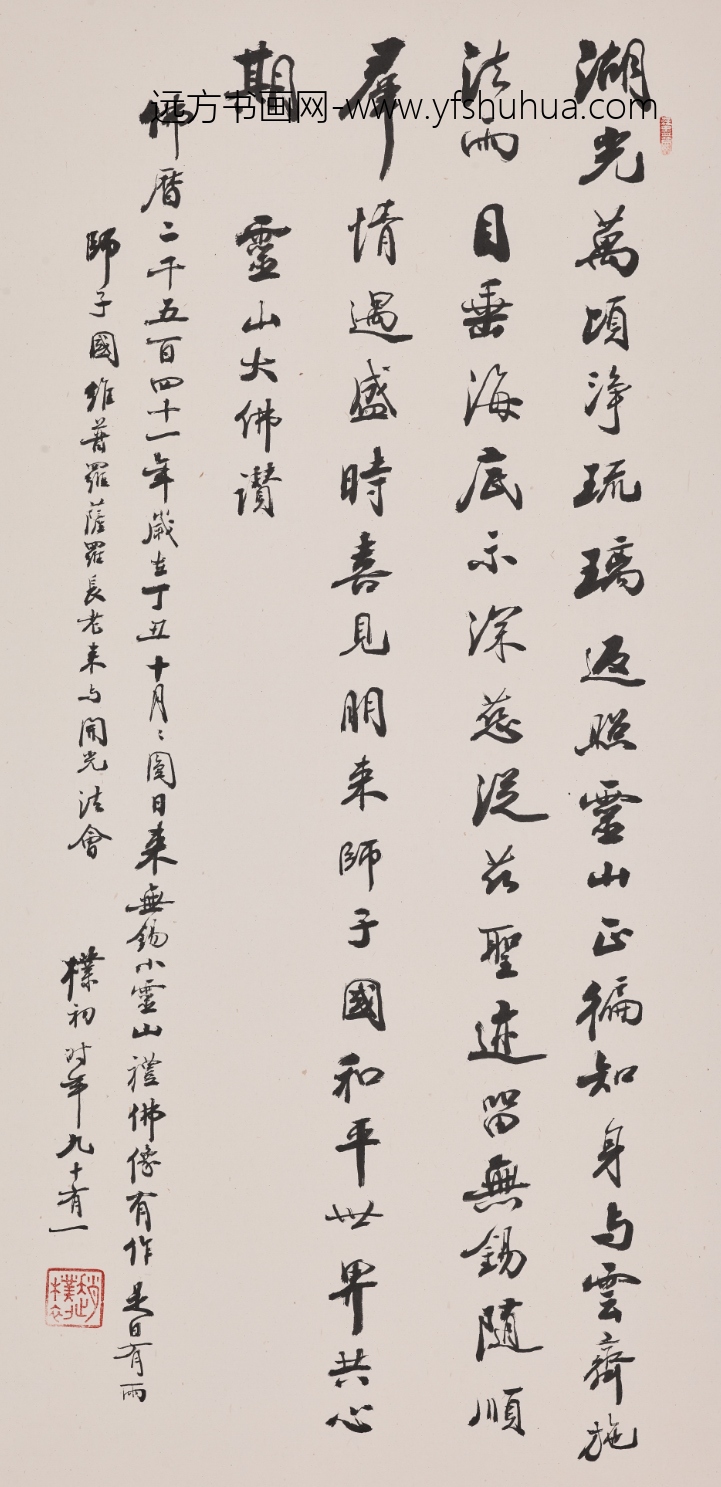 湖光萬頃浄琉璃返照靈山正徧知身与雲齊施
法雨目垂海底示深慈從茲聖迹留無錫隨順
羣情遇盛時喜見朋来師子國和平世界共心
期
靈山大佛讃
佛曆二千五百四十一年歲在丁丑十月月圓日来無錫小靈山禮佛像有作是日有雨
師子國維普羅薩羅長老来与開光法會
樸初时年九十有一
趙樸初
远方书画网-www.yfshuhua.com